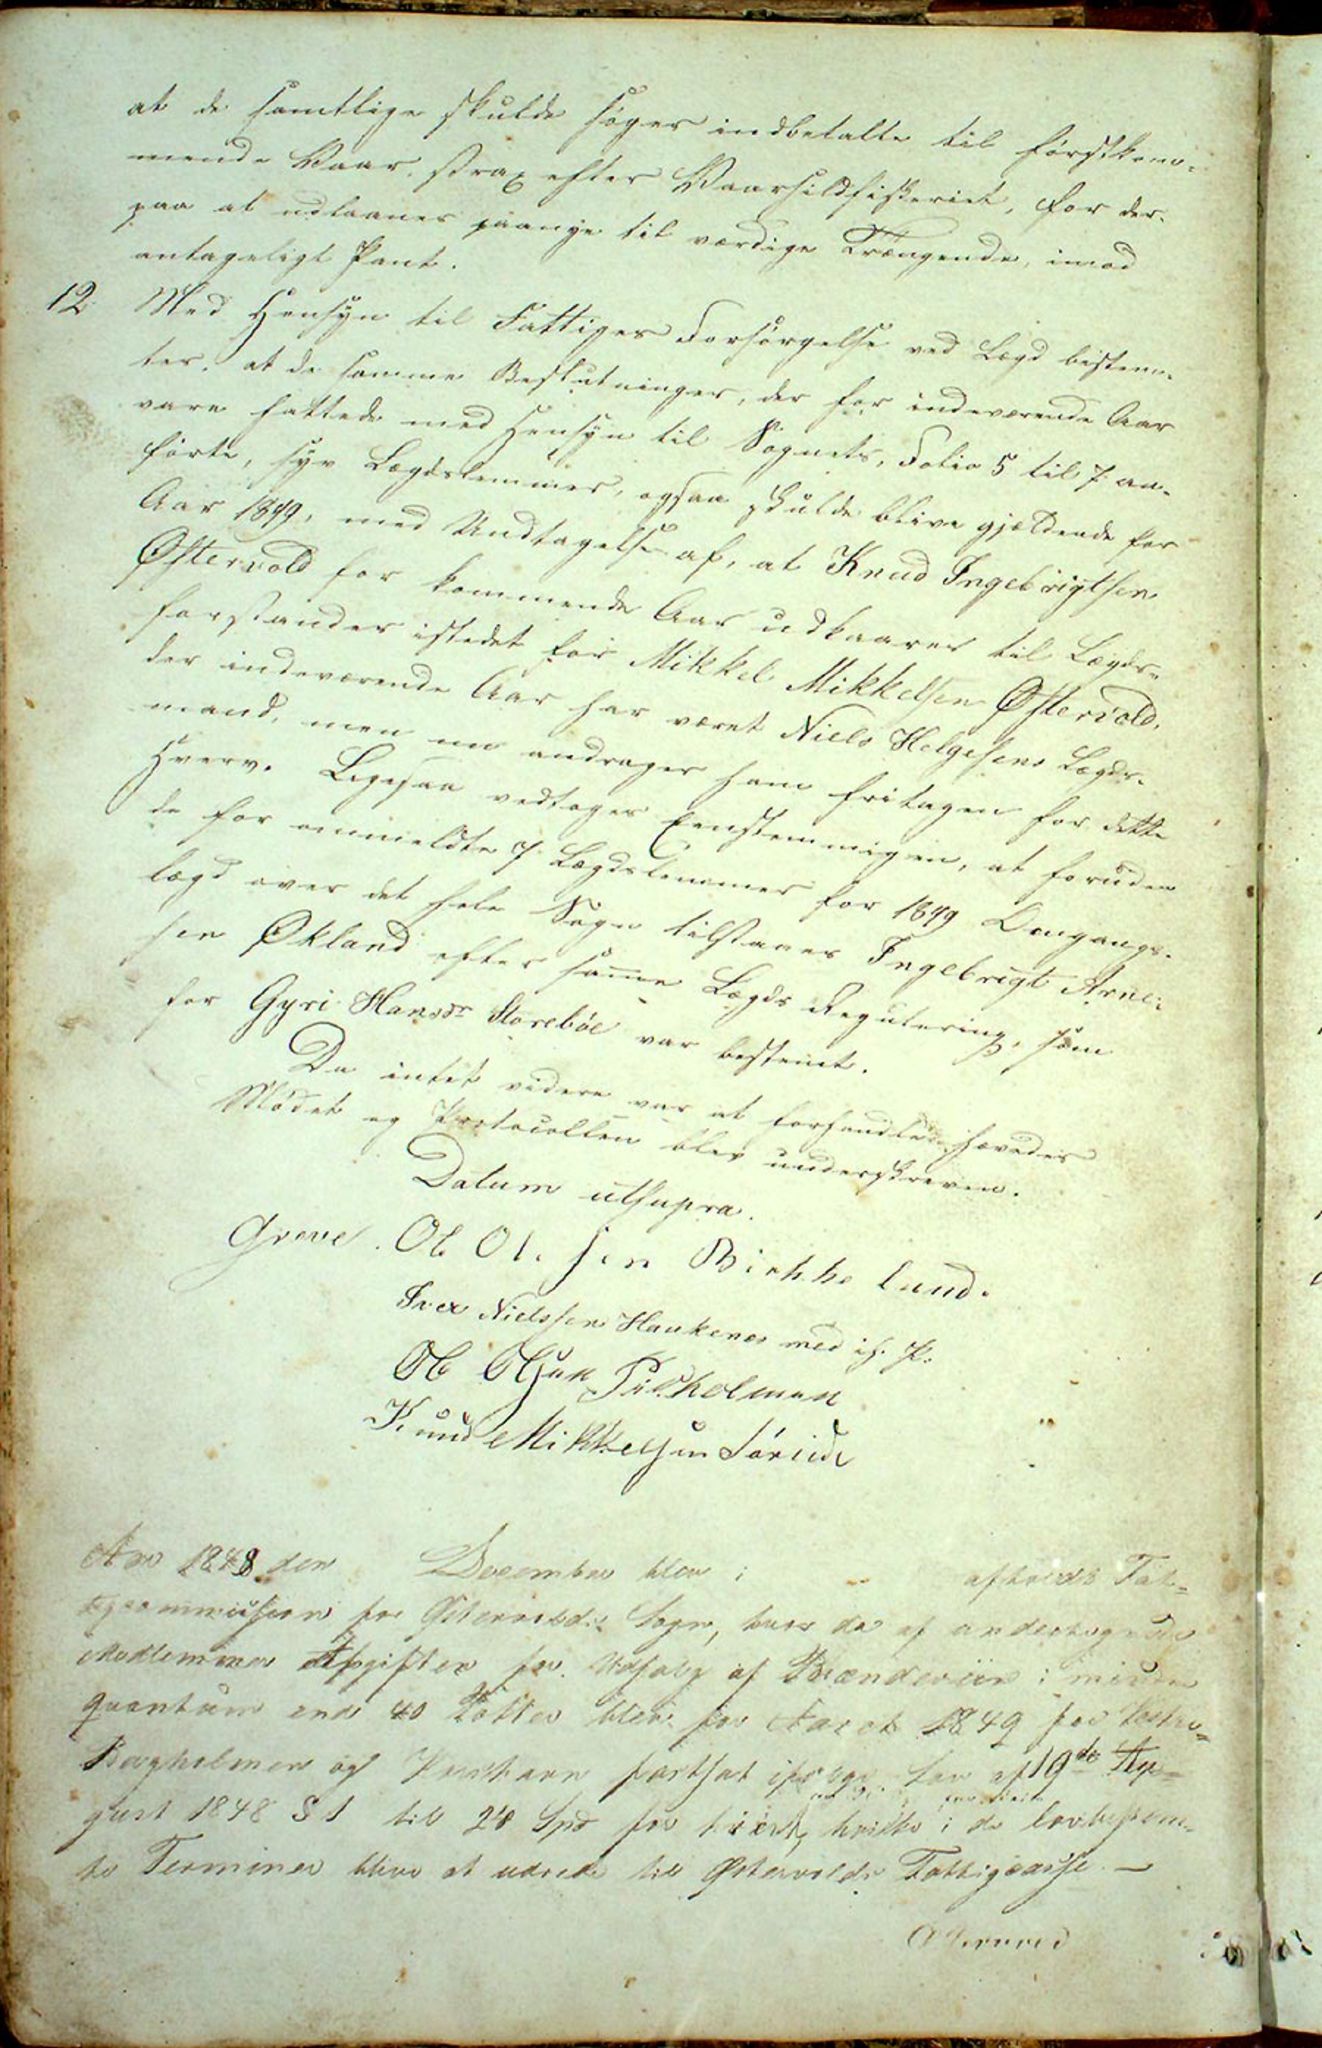 at de samtlige skulde søges indbetalte til førstkom-
mende Vaar, strax efter Vaarsildfiskeriet, for der-
paa at udlaanes paanye til værdige Trængende, imod
antageligt Pant.
12 Med Hensyn til Fattiges Forsørgelse ved Lægd bestem-
tes, at de samme Beslutninger, der for indeværende Aar
vare fattede med Hensyn til Sognets, Folio 5 til 7 an-
førte, syv Lægdslemmer, ogsaa skulde blive gjældende for
Aar 1849, med Undtagelse af, at Knud Ingebrigtsen
Østervold for kommende Aar udkaares til Lægds-
forstander istedet for Mikkel Mikkelsen Østervold,
der indeværende Aar har været Niels Helgesens Lægds-
mand, men nu andrages ham fritagen for dette
Hverv. Ligesaa vedtoges Eenstemmigen, at foruden
de for ommeldte 7 Lægdslemmer for 1849 Omgangs-
lægd over det hele Sogn tilstaaes Ingebrigt Arne-
sen Økland efter samme Lægds Regulering, som
for Gyri Hansdr Storebøe var bestemt.
Da intet videre var at forhandle hævedes
Mødet og Protocollen blev underskreven.
Datum utsupra.
Greve. Ole Olsen Birkeland.
Iver Nielssen Haukenes med i. h. P.
Ole Olsen
Knud Mikkelsen
Aar 1848 den December blev i afholdt Fat-
tigcommission for Østervolds Sogn, hvor da af undertegnede
Medlemmer Afgiften for Udsalg af Brændeviin i mindre
Quantum end 40 Potter blev for Aaret 1849 for
Bergholmen og fastsat ifølge Lov af 19de Au-
gust 1848 § 1 til 24 Spd for hvert, hvilke i de lovbestem-
te Terminer blive at udrede til Østervolds Fattigcasse. —